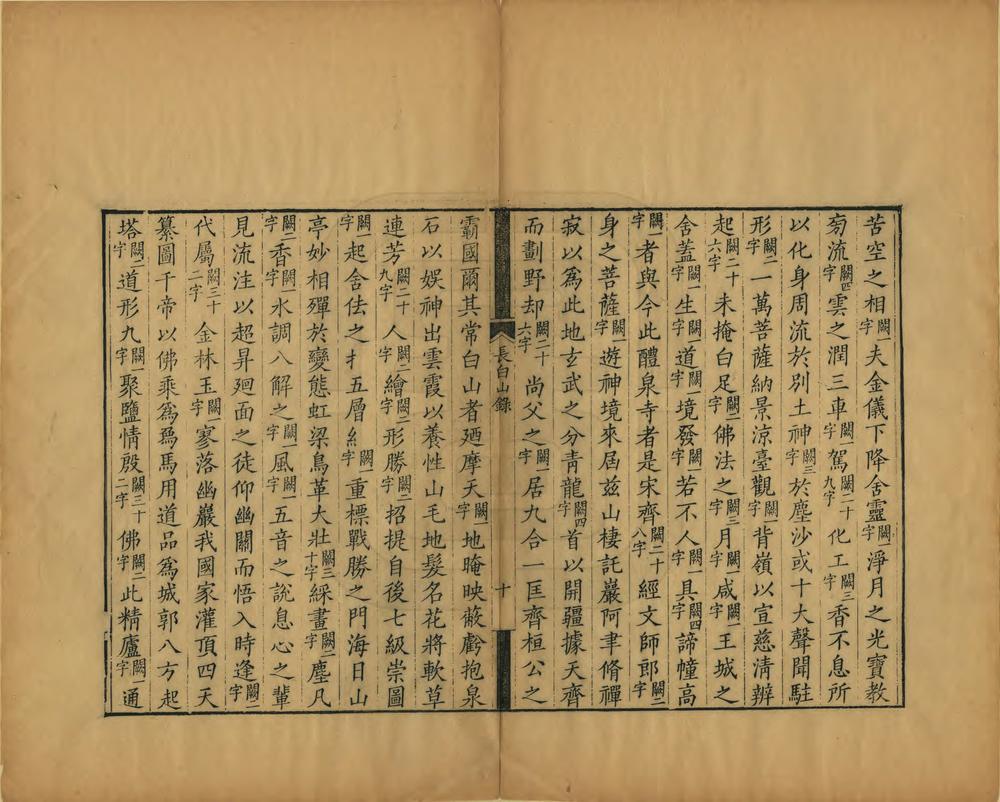 苦空之相闕一字夫金儀下降舍靈闕一字淨月之光寶教
匇流闕四字雲之潤三車闕一字駕闕二十九字化工闕三字香不息所
以化身周流於別土神闕三字於塵沙或十大聲聞駐
形闕二字一萬菩薩納景涼臺觀闕一字背嶺以宣慈清辨
起闕二十六字未掩白足闕二字佛法之闕三字月闕一字咸闕一字王城之
舍蓋闕一字生闕一字道闕一字境發闕一字若不人闕一字具闕四字諦幢高
闕一字者與今此醴泉寺者是宋齊闕二十八字經文師郎闕二字
身之菩薩闕一字遊神境來屆茲山棲託巖阿聿脩禪
寂以為此地玄武之分青龍闕四字首以開疆據天齊
而劃野却闕二十六字尚父之闕一字居九合一匡齊桓公之
長白山錄
十
霸國爾其常白山者廼摩天闕一字地晻映蔽虧抱泉
石以娛神出雲霞以養性山毛地髮名花將軟草
連芳闕二十九字人闕二字繪闕二字形勝闕二字招提自後七級崇圖
闕一字起舍佉之才五層糹闕一字重標戰勝之門海日山
亭妙相殫於變態虹梁鳥革大壯闕三十字綵畫闕二字塵凡
闕二字香闕一字水調八解之闕一字風闕一字五音之說息心之輩
見流注以超昇廻面之徒仰幽關而悟入時逢闕二字
代屬闕三十二字金林玉闕一字寥落幽巖我國家灌頂四天
纂圖千帝以佛乘為爲馬用道品為城郭八方起
塔闕二字道形九闕一字聚鹽情殷闕三十二字佛闕二字此精廬闕一字通